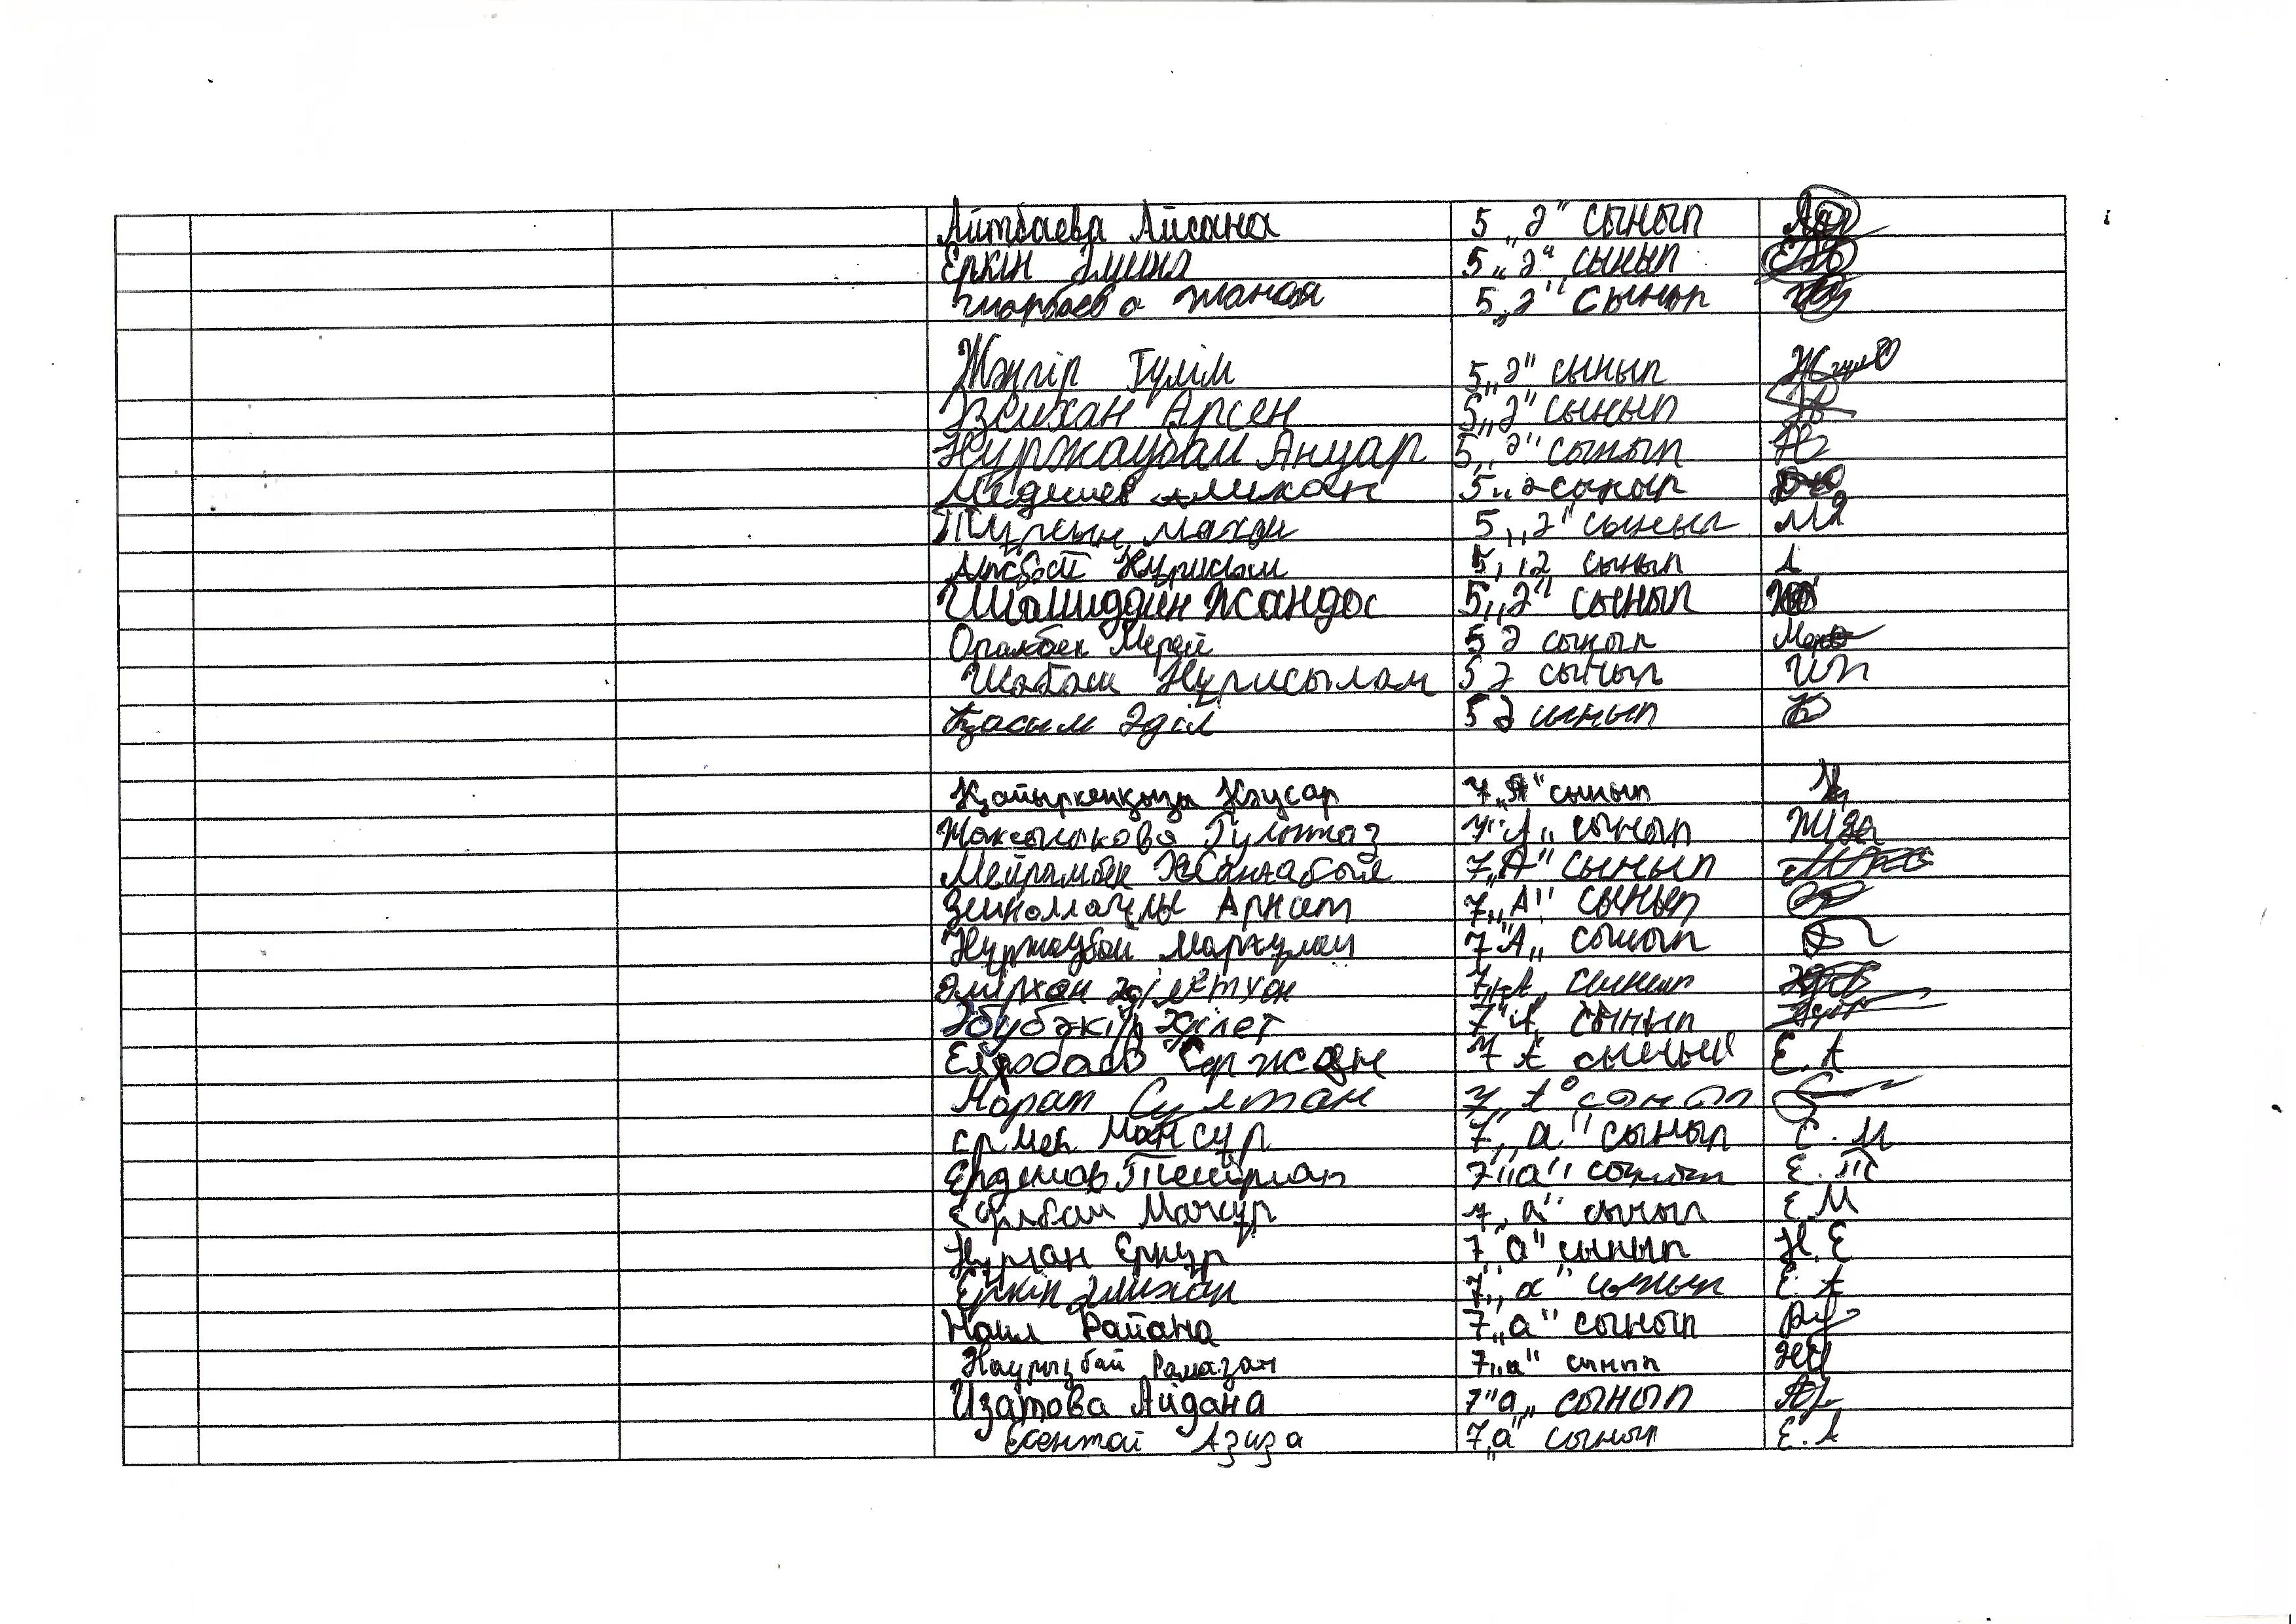 Айтбаева Айсана 5 „Ә" сынып
Еркін Әмина 5 „Ә" сынып
Шорбаева Жаная 5 „Ә" сынып
Жәңгір Гүлім 5 „Ә" сынып
Әзейхан Арсен 5 „Ә" сынып
Нұржаубай Ануар 5 „Ә" сынып
Медешев Әлихан 5 „Ә сынып
Тұрсын Махди 5 „Ә" сынып М
Нұрислам 5 „Ә сынып А
Шамиддин Жандос 5 „Ә" сынып
Оралбек Мерей 5 Ә сынып
Шабаш Нұрисылам 5 Ә сынып ШН
Қасым Әділ 5 Ә сынып
Қайыркенқызы Кәусар 7 „А" сынып
Жаксылыкова Гулназ 7 "А„ сынып
Мейрамбек Жбаннабыл 7 „А" сынып
Зейноллаұлы Арнат 7 „А" сынып
Нұржаубай Марғұлан 7 "А„ сынып
Әмірхан Ділетхан 7 „А сынып
Әбубәкір Әділет 7 "А„ сынып
Сержан 7 А сынып Е.А
Морат Султан 7 „А" сынып
Ермек Мансұр 7 „а" сынып Е.М
Ерденов Теміірлан 7 "а" сынып Е.Т
Мансұр 7 „а" сынып Е.М
Нұрлан Ернұр 7 „а" сынып Н.Е
Еркін Әлихан 7 „а" сынып Е.А
Наил Райана 7 „а" сынып
Наурызбай Рамазан 7 „а" сынып
Изатова Айдана 7 "а„ сынып
Есентай Азиза 7 „а" сынып Е.А